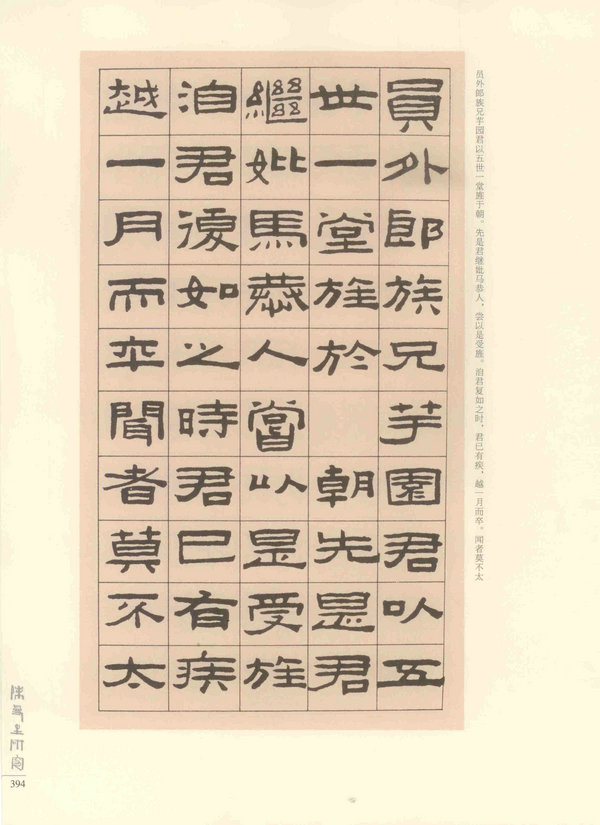 員外郎族兄芋園君以五
世一堂旌於朝先是君
繼妣馬恭人嘗以是受旌
洎君復如之時君已有疾
越一月而卒聞者莫不太
员外郎族兄芋园君以五世一堂旌于朝。先是君继妣马恭人，尝以是受旌。洎君复如之时，君已有疾，越一月而卒。闻者莫不太
394